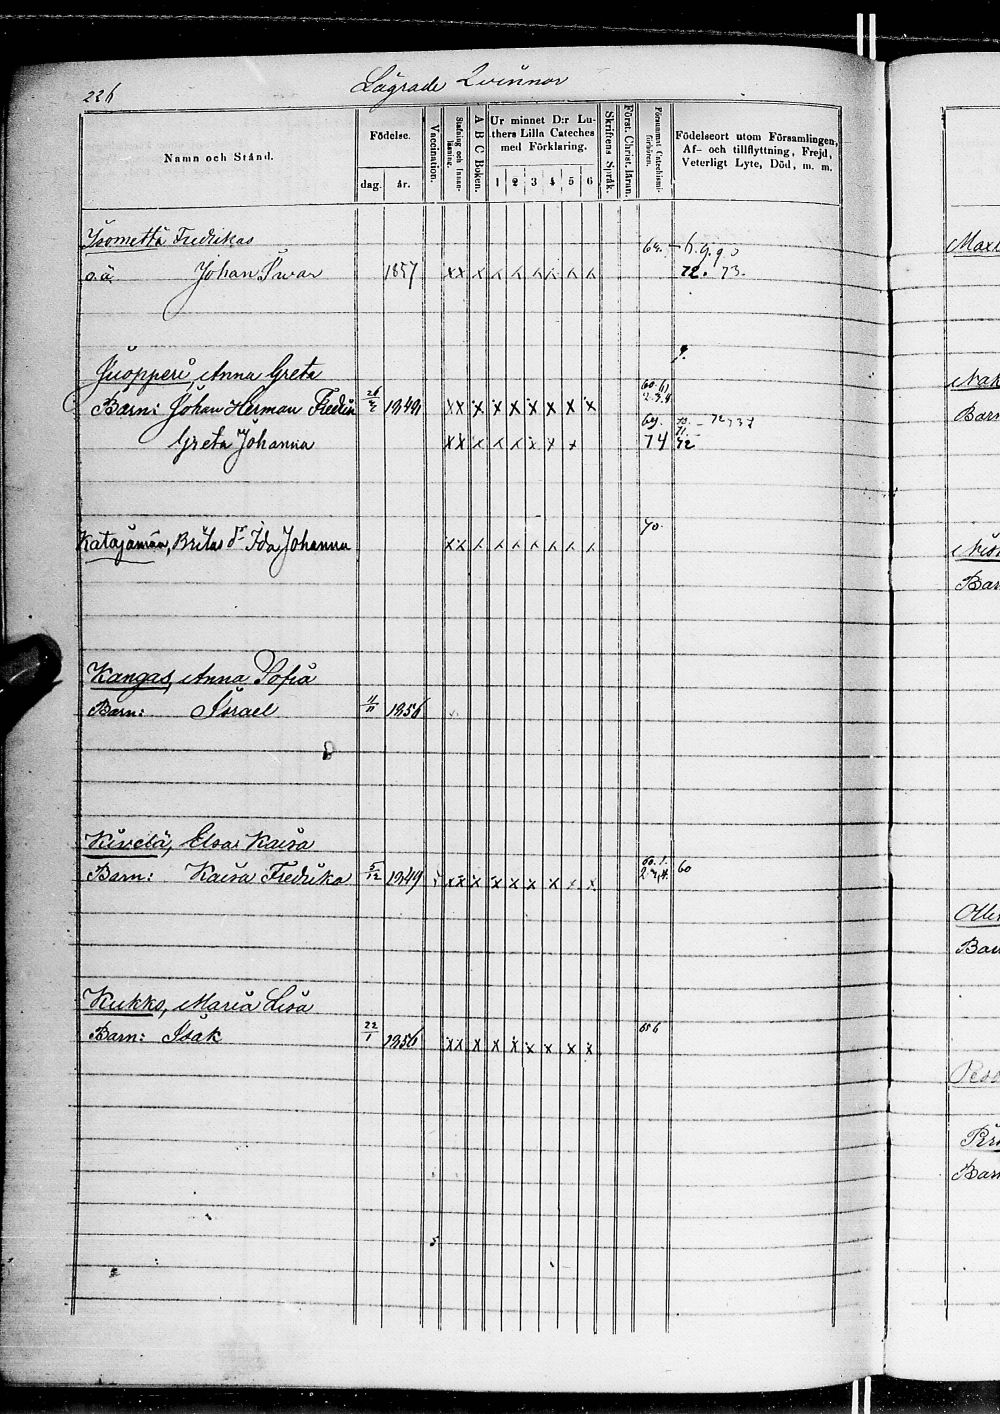 226
Lägrade Qvinnor
Namn och Stånd.
Födelse.
dag.
år.
Vaccination.
Stafning och Innan-
läsning.
A B C Boken.
Ur minnet D:r Lu-
thers Lilla Cateches
med Förklaring.
1 2 3 4 5 6
Skriftens Språk.
Först. Christ. läran.
Försummat Catechismi-
förhören.
Födelseort utom Församlingen,
Af- och tillflyttning, Frejd,
Veterligt Lyte, Död, m. m.
Isometsä Fredrikas
o.ä. Johan Iwar 1857 x x x x x x x x x
72. 73.
Juopperi, Anna Greta
Barn: Johan Herman Fredrik 1849 x x x x x x x x x
60. 61
2. 3. 4
69.
Greta Johanna x x x x x x x x 74 72
70.
Katajamaa, Britas dr Ida Johanna x x x x x x x x x
Kangas, Anna Sofia
Barn: Israel 11/11 1856
Kivelä, Elsa Kaisa
Barn: Kaisa Fredrika 5/12 1849 x x x x x x x x x 60
Kukko, Maria Lisa
Barn: Isak 22/1 1856 x x x x x x x x x
Maxi
Nak
Barn
Nisk
Bar
Oller
Bar
Pess
Per
Bar